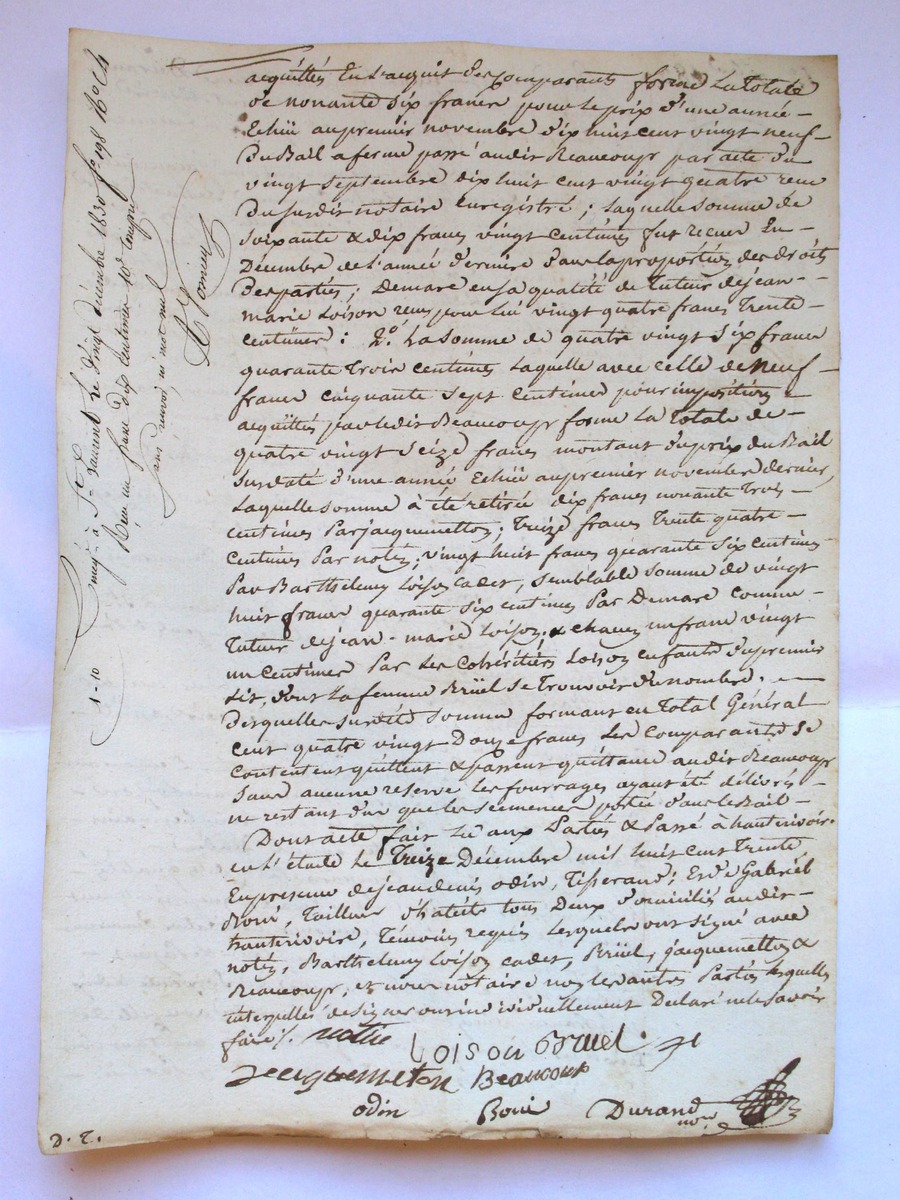 acquittés En L'acquit des Comparants forme La totale
de nonante six francs pour le prix d'une année
Echüe au premier novembre dix huit cent vingt neuf
Du Bail a ferme passé audit Beaucoup par acte du
vingt septembre dix huit cent vingt quatre reçu
Dususdit notaire Enregistré ; Laquelle somme de
soixante & dix francs vingt centimes fut recue En
Décembre de l'année dernière dans la proportion des droits
Desparties ; Demare en sa qualité de Tuteur de jean-
marie Loison reçut pour lui vingt quatre francs Trente
centimes : 2º. La somme de quatre vingt six francs
quarante Trois centimes Laquelle avec celle de neuf
francs cinquante sept centimes pour imposition
acquittés par ledit Beaucoup forme La Totale de
quatre vingt seize francs montant du prix du Bail
susdaté d'une année Echüe au premier novembre dernier,
Laquelle somme à été retirée dix francs nonante Trois
centimes Par jacquemetton ; Treize francs Trente quatre
centimes Par notin ; vingt huit francs quarante six centimes
Par Barthelemy Loison cadet, semblable somme de vingt
huit francs quarante six centimes Par Demare comme
Tuteur de jean-marie Loison ; & chacun un franc vingt
un centimes Par Les Cohéritiers Loison enfants du premier
Lit, dont La femme Brüel se trouvoit du nombre.
Desquelles susdite somme formant en Total Général
cent quatre vingt Douze francs Les Comparants se
Contentent quittent & passent quittance audit Beaucoup
sans aucune reserve Les fourrages ayant été délivrés
ne restant dur que les semences portée dans le Bail
Dont acte fait Lu aux Parties & Passé à hauterivoire
en L'étude Le Treize Décembre mil huit cent Trente
En presence de jean denis odin, Tisserand ; Et de Gabriël
Boui, Tailleur d'habits tous Deux domiciliés audit
hauterivoire, Témoins requis Lesquels ont signé avec
notin, Barthelemy Loison cadet, Brüel, jacquemetton &
Beaucoup, et nous notaire non les autres Parties lesquelles
interpellés de signer ont individuellement Declaré ne le savoir
faire /. notin
Loison Bruel
Jacquemeton Beaucoup
odin Boui Durand
no.re
D. T.
Enregt. à St. Laurent Le vingt décembre 1830 fº. 198 Rº. C 4
Reçu un franc dix centimes 10e. Compris
sans renvoi, ni mot nul
1 - 10